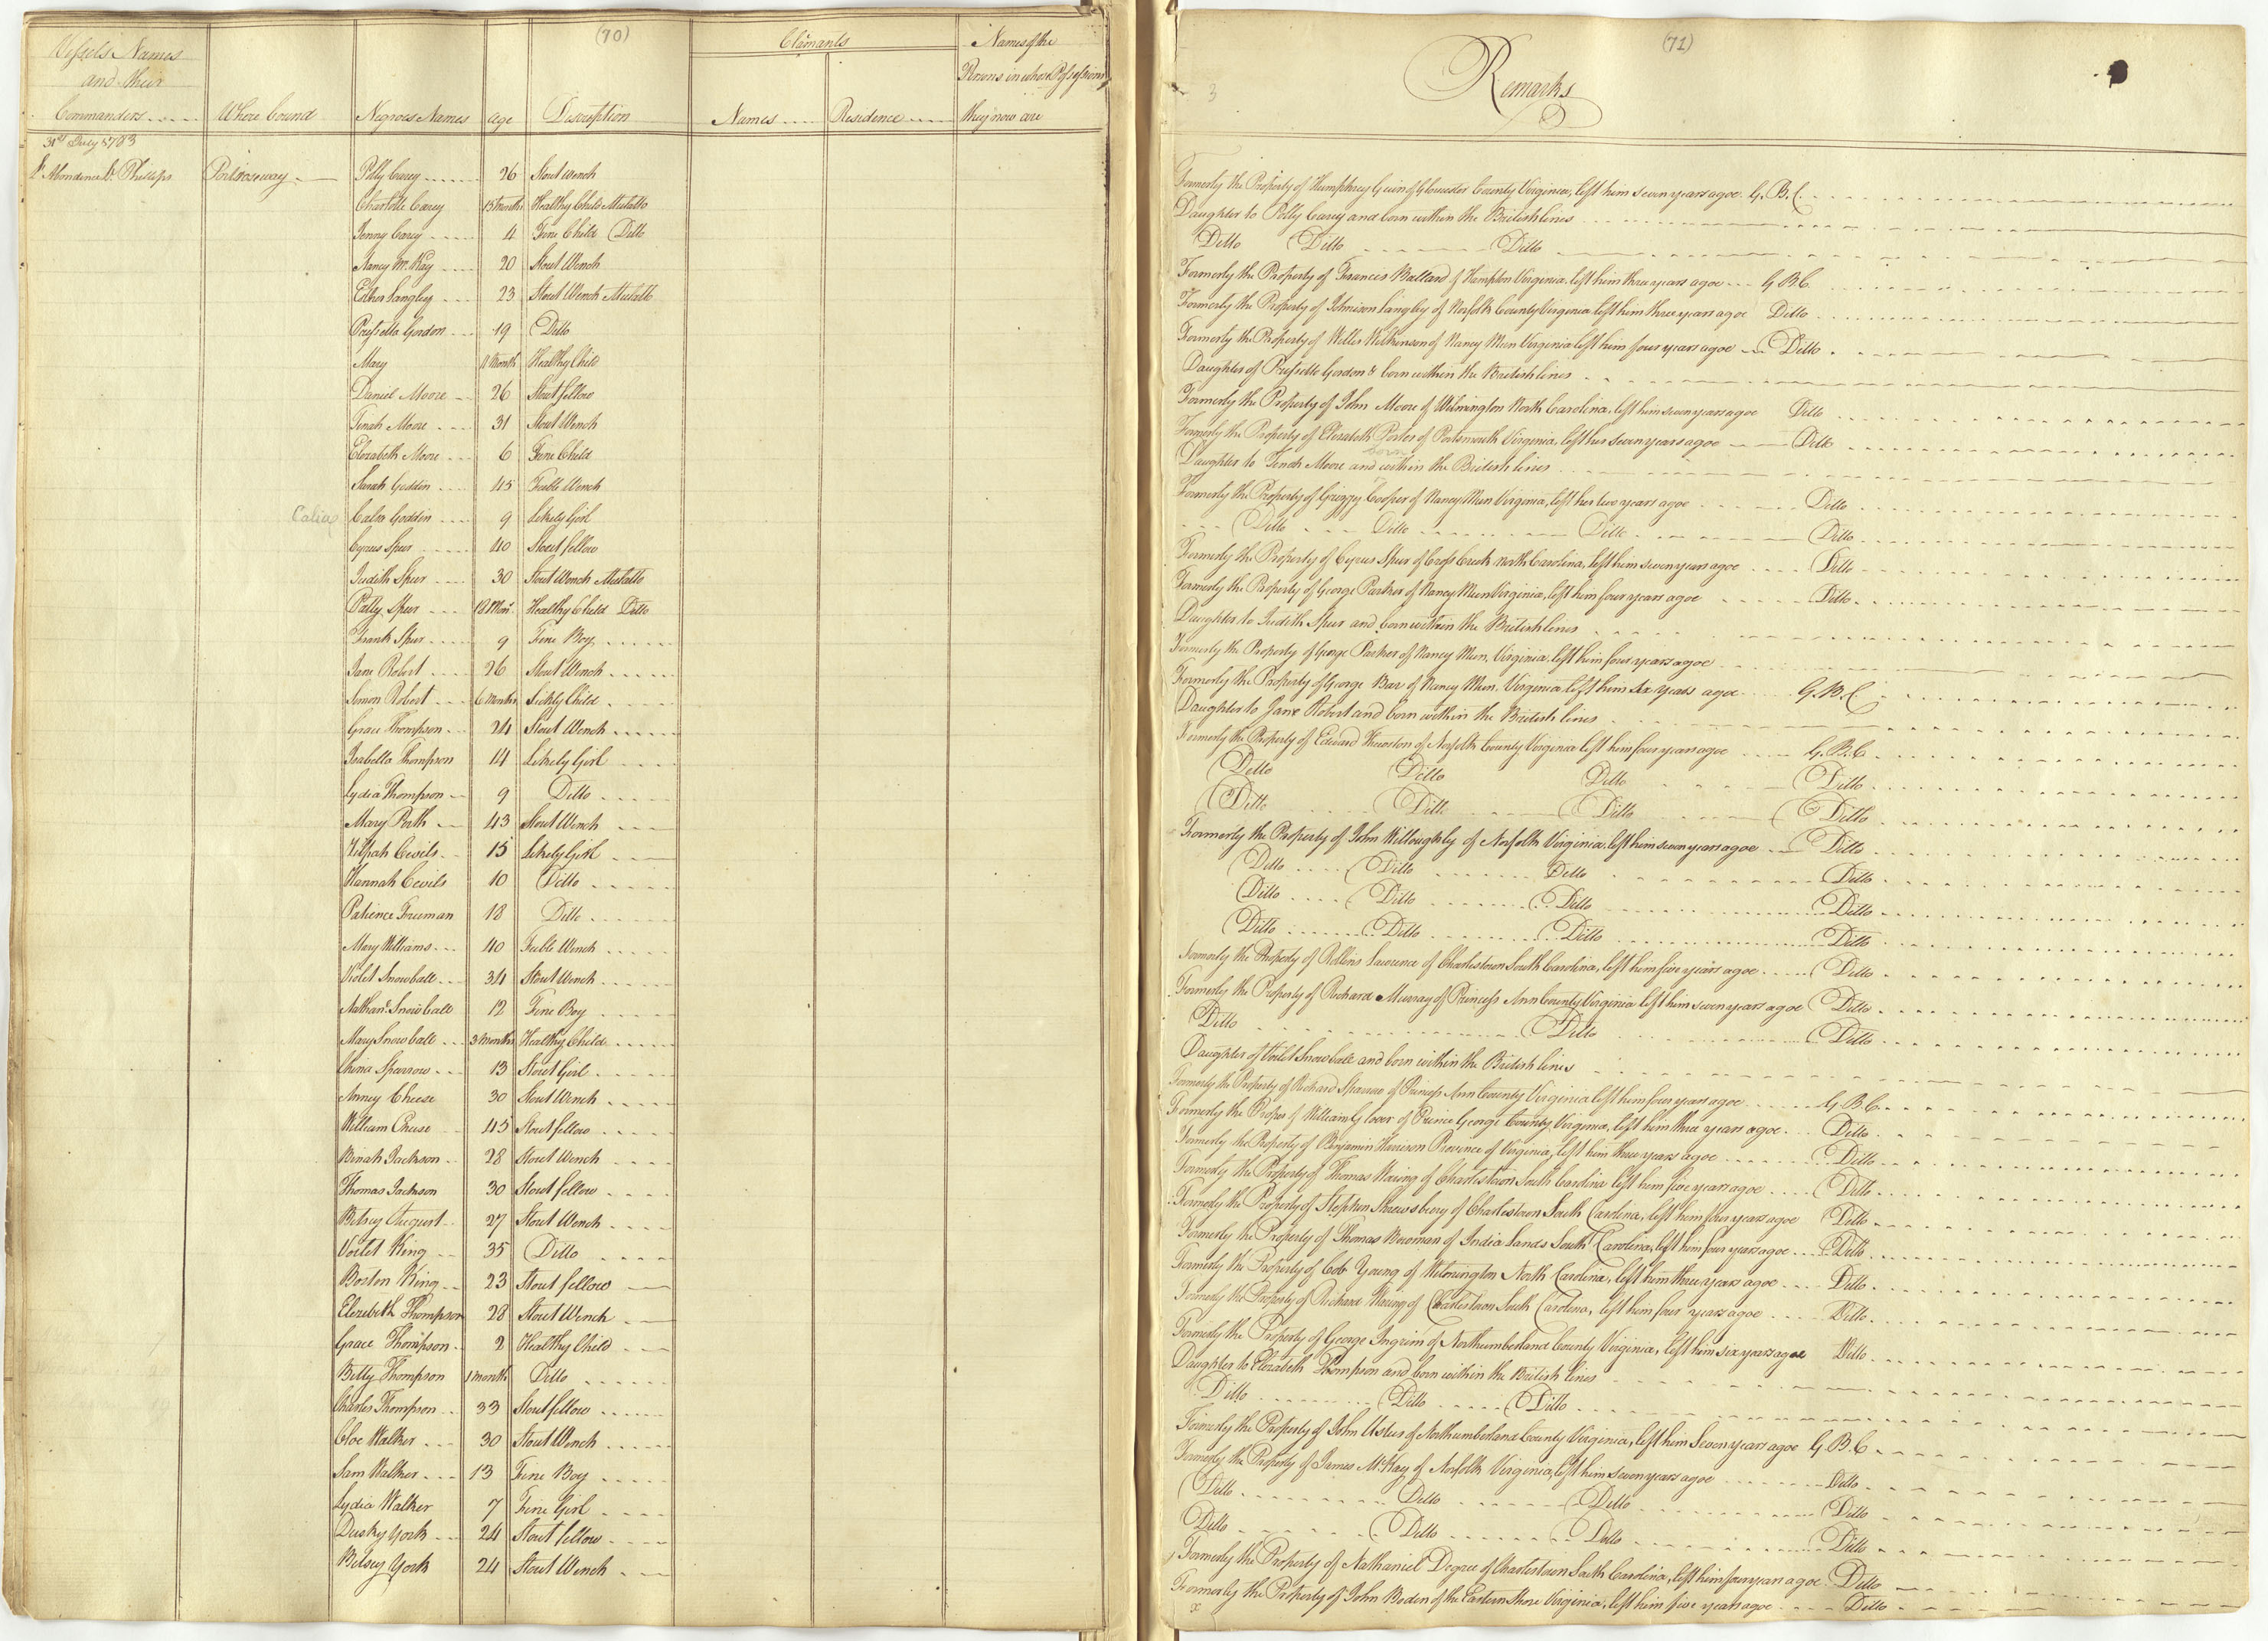 (70)
Vessels Names and their Commanders
Where bound
Negroes Names
Age
Discription
Claimants
Names
Residence
Names of the Persons in whose Possession they now are
31st July 1783
L'Abondance Lt. Phillips Port roseway
Polly Carey 26 Stout Wench
Charlotte Carey 15 Months Healthy Child Mulatto
Jenny Carey 4 Fine Child Ditto
Nancy McKay 20 Stout Wench
Esther Langley 23 Stout Wench Mulatto
Prissella Gordon 19 Ditto
Mary Month Healthy Child
Daniel Moore 26 Stout fellow
Tinah Moore 31 Stout Wench
Elizabeth Moore 6 Fine Child
Sarah Goddin 45 Feeble Wench
Calia Calia Goddin 9 Likely Girl
Cyrus Spur 40 Stout fellow
Judith Spur 30 Stout Wench Mulatto
Patty Spur 18 Mon. Healthy Child Ditto
Frank Spur 9 Fine Boy
Jane Robert 26 Stout Wench
Simon Robert 6 Months Sickly Child
Grace Thompson 24 Stout Wench
Isabella Thompson 14 Likely Girl
Lydia Thompson 9 Ditto
Mary Perth 43 Stout Wench
Zilpah Cevils 15 Likely Girl
Hannah Cevils 10 Ditto
Patience Freeman 18 Ditto
Mary Williams 40 Feeble Wench
Violet Snowball 34 Stout Wench
Nathanl. Snowball 12 Fine Boy
Mary Snowball 3 Months Healthy Child
China Sparrow 13 Stout Girl
Anney Cheese 30 Stout Wench
William Cheese 45 Stout fellow
Binah Jackson 28 Stout Wench
Thomas Jackson 30 Stout fellow
Betsey August 27 Stout Wench
Voilet King 35 Ditto
Boston King 23 Stout fellow
Elizabeth Thompson 28 Stout Wench
Grace Thompson 2 Healthy Child
Betty Thompson 1 month Ditto
Charles Thompson 33 Stout fellow
Cloe Walker 30 Stout Wench
Sam Walker 13 Fine Boy
Lydia Walker 7 Fine Girl
Dusky York 24 Stout fellow
Betsey York 24 Stout Wench
(71)
3
Remarks
Formerly the Property of Humphrey Gwin of Gloucester County Virginia, left him seven years agoe. G.B.C.
Daughter to Polly Carey and born within the British lines
Ditto Ditto Ditto
Formerly the Property of Francis Ballard of Hampton Virginia, left him three years agoe G.B.C.
Formerly the Property of Johnson Langley of Norfolk County Virginia left him three years agoe Ditto
Formerly the Property of Willis Wilkinson of Nancy Mun Virginia left him four years agoe Ditto
Daughter of Prissella Gordon & born within the British lines
Formerly the Property of John Moore of Wilmington North Carolina, left him seven years agoe Ditto
Formerly the Property of Elizabeth Porter of Portsmouth Virginia, left her seven years agoe Ditto
born
Daughter to Tinah Moore and within the British lines
Formerly the Property of Griggy Cooper of Nancy Mun Virginia, left her two years agoe Ditto
Ditto Ditto Ditto Ditto
Formerly the Property of Cyrus Spur of Cross Creek North Carolina, left him seven years agoe Ditto
Formerly the Property of George Parker of Nancy Mun Virginia, left him four years agoe Ditto
Daughter to Judith Spur and born within the British lines
Formerly the Property of George Parker of Nancy Mun, Virginia, left him four years agoe
Formerly the Property of George Bar of Nancy Mun. Virginia left him six years agoe G.B.C
Daughter to Jane Robert and born within the British lines
Formerly the Property of Edward Thurston of Norfolk County Virginia left him four years agoe G.B.C
Ditto Ditto Ditto Ditto
Ditto Ditto Ditto Ditto
Formerly the Property of John Willoughby of Norfolk Virginia, left him seven years agoe Ditto
Ditto Ditto Ditto Ditto
Ditto Ditto Ditto Ditto
Ditto Ditto Ditto Ditto
Formerly the Property of Rollins Lawrence of Charlestown South Carolina, left him five years agoe Ditto
Formerly the Property of Richard Murray of Princess Ann County Virginia left him seven years agoe Ditto
Ditto Ditto Ditto
Daughter of Voilet Snowball and born within the British lines
Formerly the Property of Richard Sparrow of Princess Ann County Virginia left him four years agoe G.B.C.
Formerly the Proper of William Glover of Prince George County Virginia, left him three years agoe Ditto
Formerly the Property of Benjamin Harrison Province of Virginia, left him three years agoe Ditto
Formerly the Property of Thomas Waring of Charlestown South Carolina left him five years agoe Ditto
Formerly the Property of Stephen Shrewsbury of Charlestown South Carolina, left him four years agoe Ditto
Formerly the Property of Thomas Bowman of India Lands South Carolina, left him four years agoe Ditto
Formerly the Property of Colo Young of Wilmington North Carolina, left him three years agoe Ditto
Formerly the Property of Richard Waring of Charlestown South Carolina, left him four years agoe Ditto
Formerly the Property of George Ingrim of Northumberland County Virginia, left him six years agoe Ditto
Daughter to Elizabeth Thompson and born within the British lines
Ditto Ditto Ditto
Formerly the Property of John Ustus of Northumberland County Virginia, left him Seven years agoe G.B.C
Formerly the Property of James McKay of Norfolk Virginia, left him seven years agoe Ditto
Ditto Ditto Ditto Ditto
Ditto Ditto Ditto Ditto
Formerly the Property of Nathaniel Degree of Charlestown South Carolina, left him four years agoe Ditto
Formerly the Property of John Boden of the Eastern Shore Virginia, left him five years agoe Ditto
x